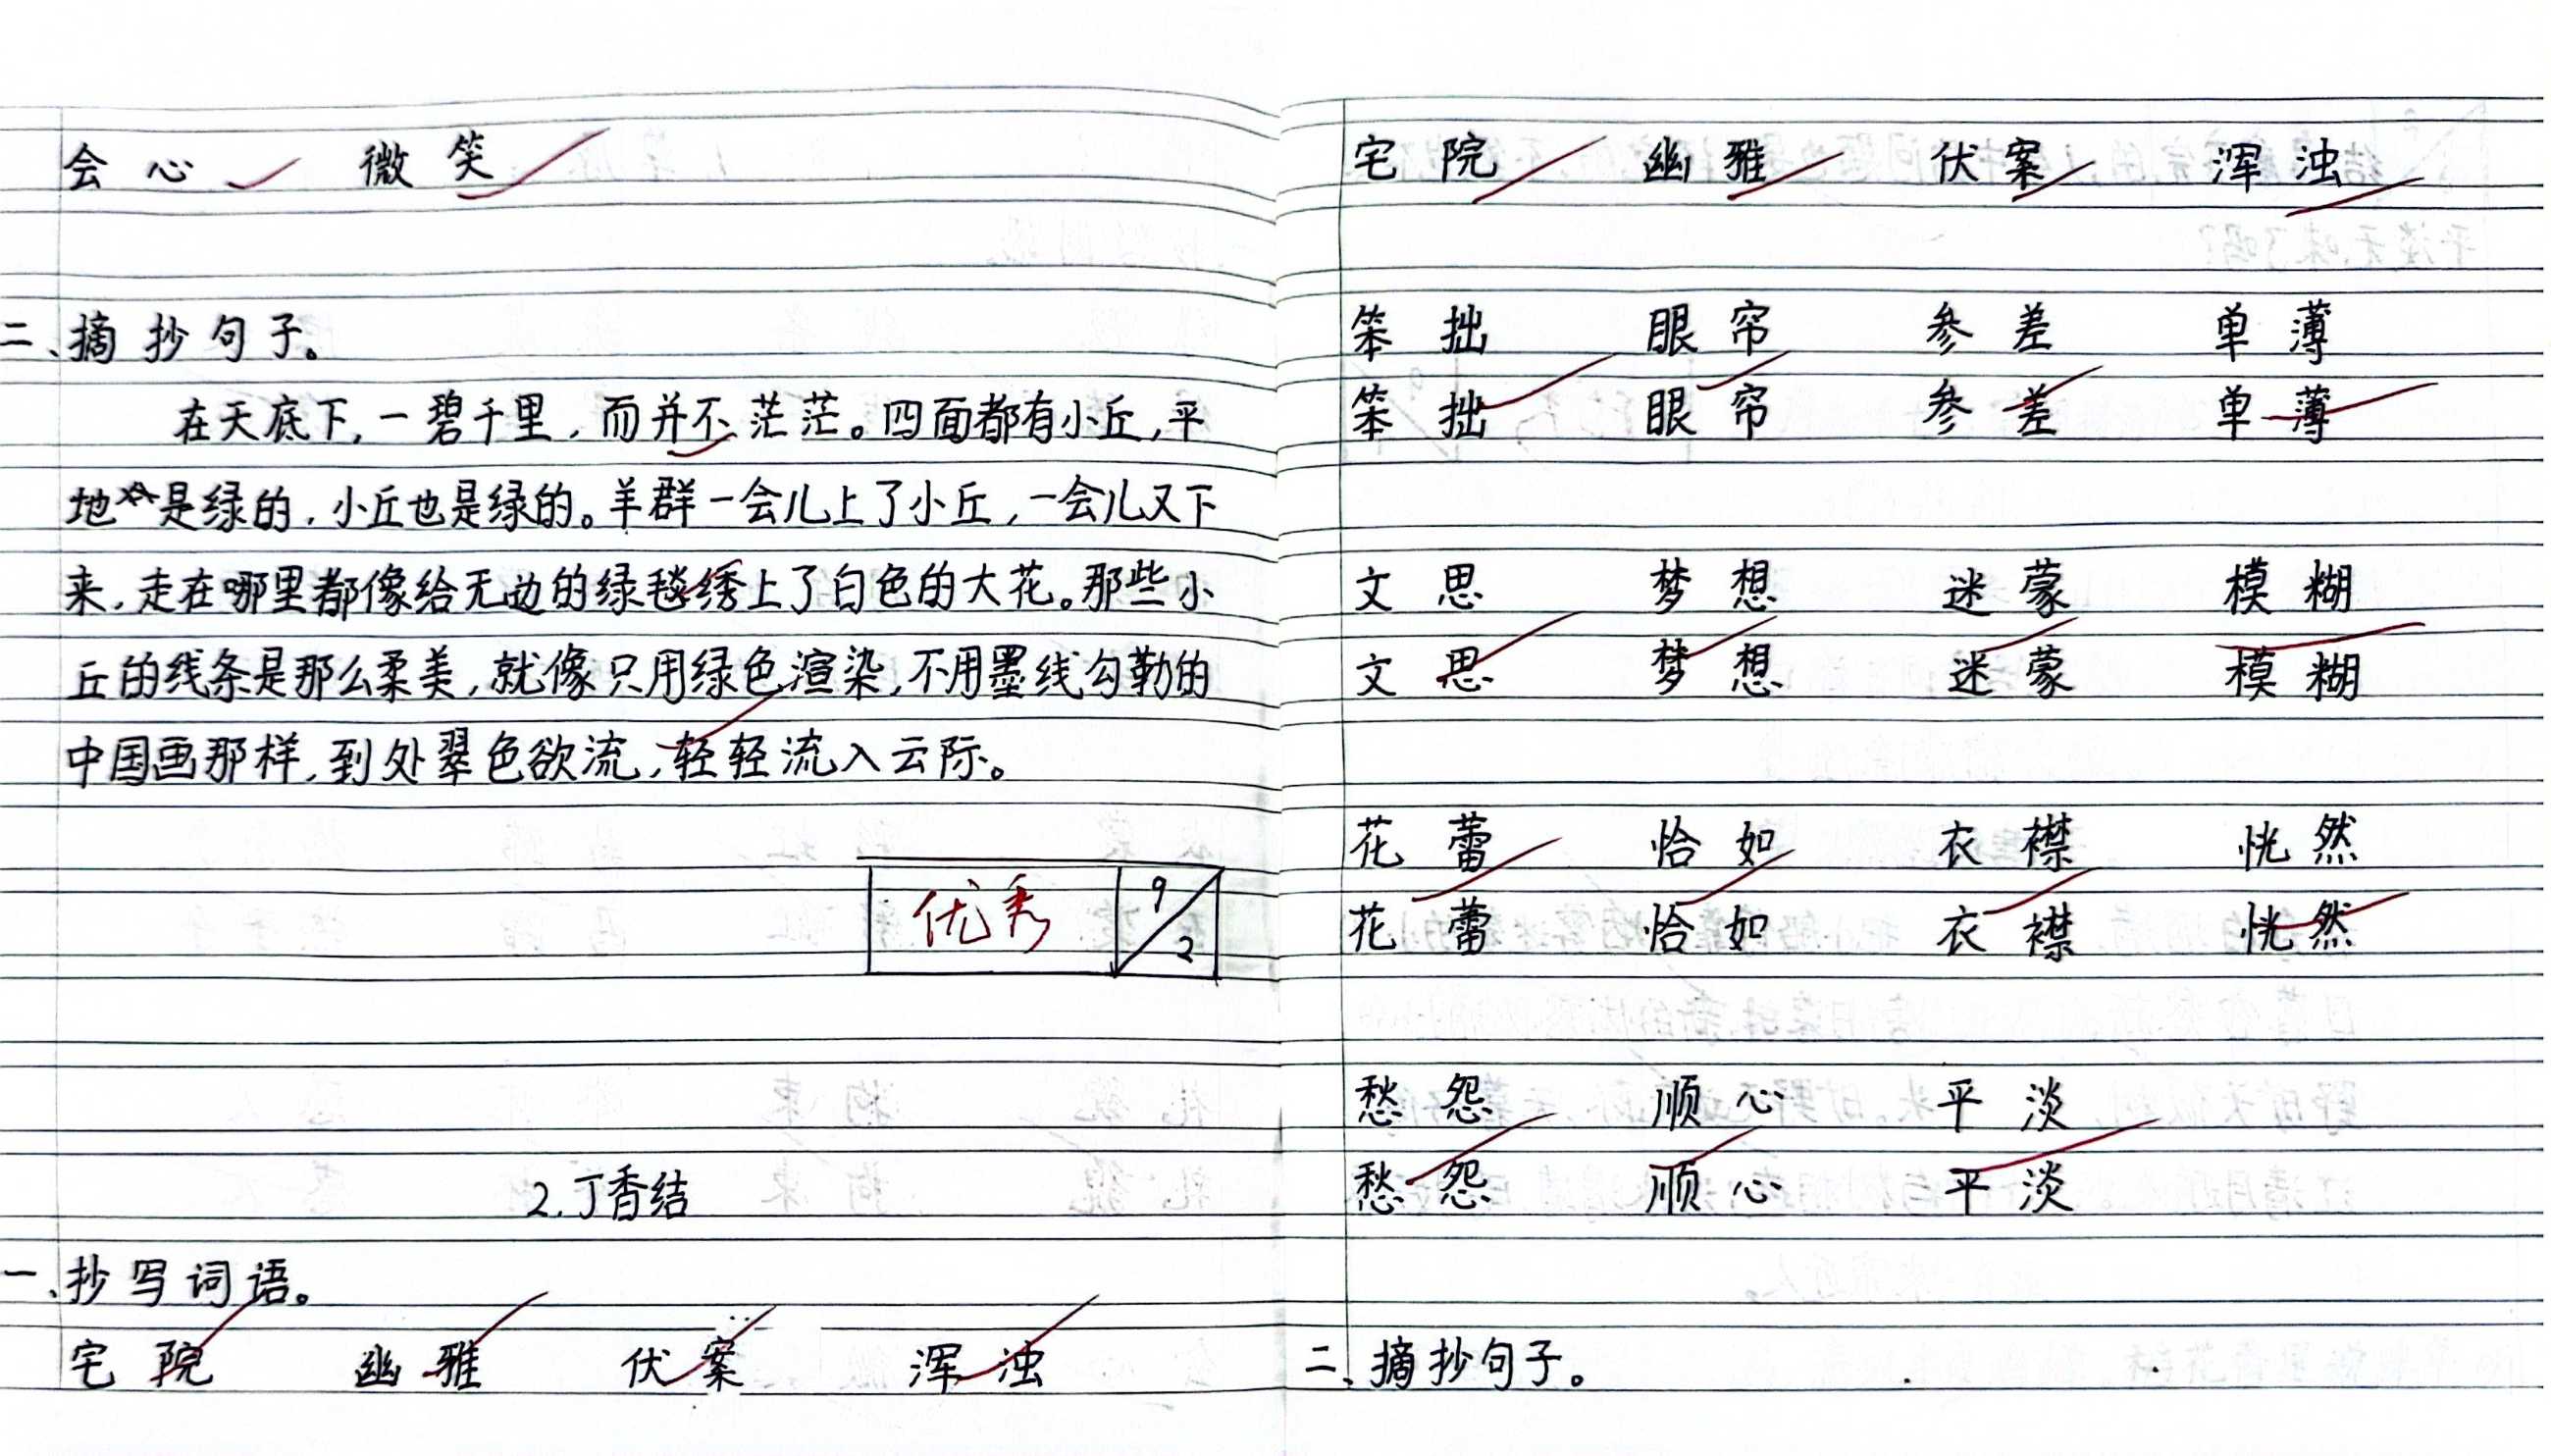 会心 微笑
二、摘抄句子。
在天底下,一碧千里,而并不茫茫。四面都有小丘,平
地是绿的,小丘也是绿的。羊群一会儿上了小丘,一会儿又下
来,走在哪里都像给无边的绿毯绣上了白色的大花。那些小
丘的线条是那么柔美,就像只用绿色渲染,不用墨线勾勒的
中国画那样,到处翠色欲流,轻轻流入云际。
优秀 9/2
2.丁香结
一、抄写词语。
宅院 幽雅 伏案 浑浊
宅院 幽雅 伏案 浑浊
笨拙 眼帘 参差 单薄
笨拙 眼帘 参差 单薄
文思 梦想 迷蒙 模糊
文思 梦想 迷蒙 模糊
花蕾 恰如 衣襟 恍然
花蕾 恰如 衣襟 恍然
愁怨 顺心 平淡
愁怨 顺心 平淡
二、摘抄句子。